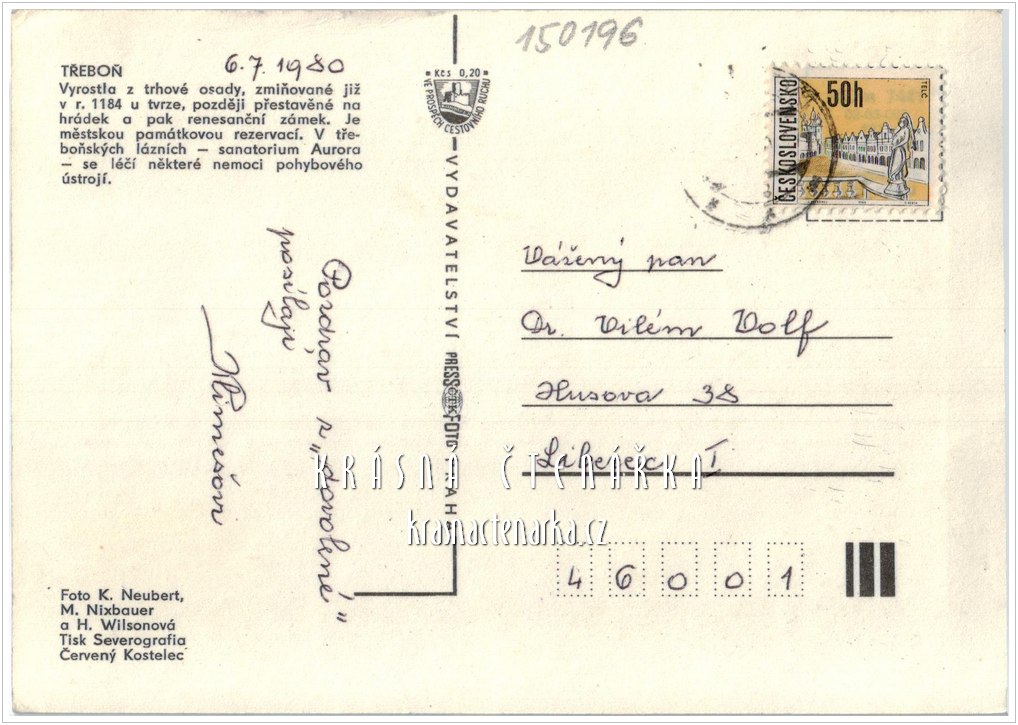 150196
6.7.1980
TŘEBOŇ
Vyrostla z trhové osady, zmiňované již
v r. 1184 u tvrze, později přestavěné na
hrádek a pak renesanční zámek. Je
městskou památkovou rezervací. V tře-
boňských lázních — sanatorium Aurora
— se léčí některé nemoci pohybového
ústrojí.
Pozdrav z „dovolené"
posílají
Klimešovi
Foto K. Neubert,
M. Nixbauer
a H. Wilsonová
Tisk Severografia
Červený Kostelec
Kčs 0,20
VE PROSPĚCH CESTOVNÍHO RUCHU
VYDAVATELSTVÍ PRESSFOTO PRAHA
ČTK
ČESKOSLOVENSKO
50h
TELČ
Vážený pan
Dr. Vilém Volf
Husova 38
Liberec I
46001
KRÁSNÁ ČTENÁŘKA
krasnactenarka.cz